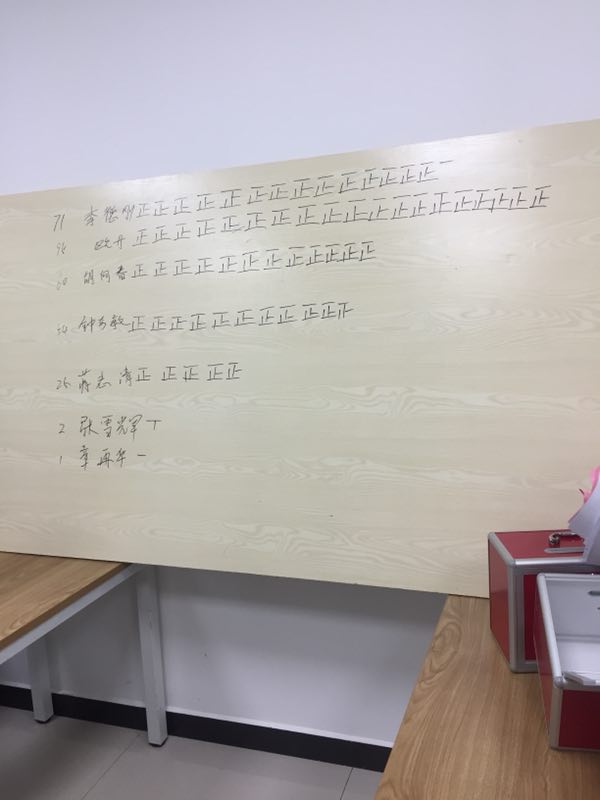 71 李德刚正正正正正正正正正正正正正正一
96 欧丹正正正正正正正正正正正正正正正正正正正
60 胡何香正正正正正正正正正正正正
54 钟芳敏正正正正正正正正正正正
25 蒋志清正正正正正
2 张雪辉丅
1 章再华一